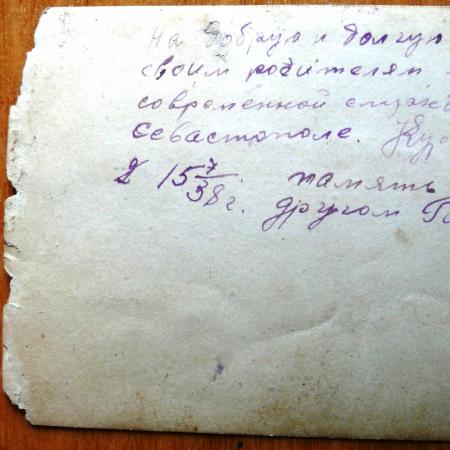 На добрую и долгую
своим родителям
современной служб
Севастополе. Кур
15 7/38г. память
другом Г